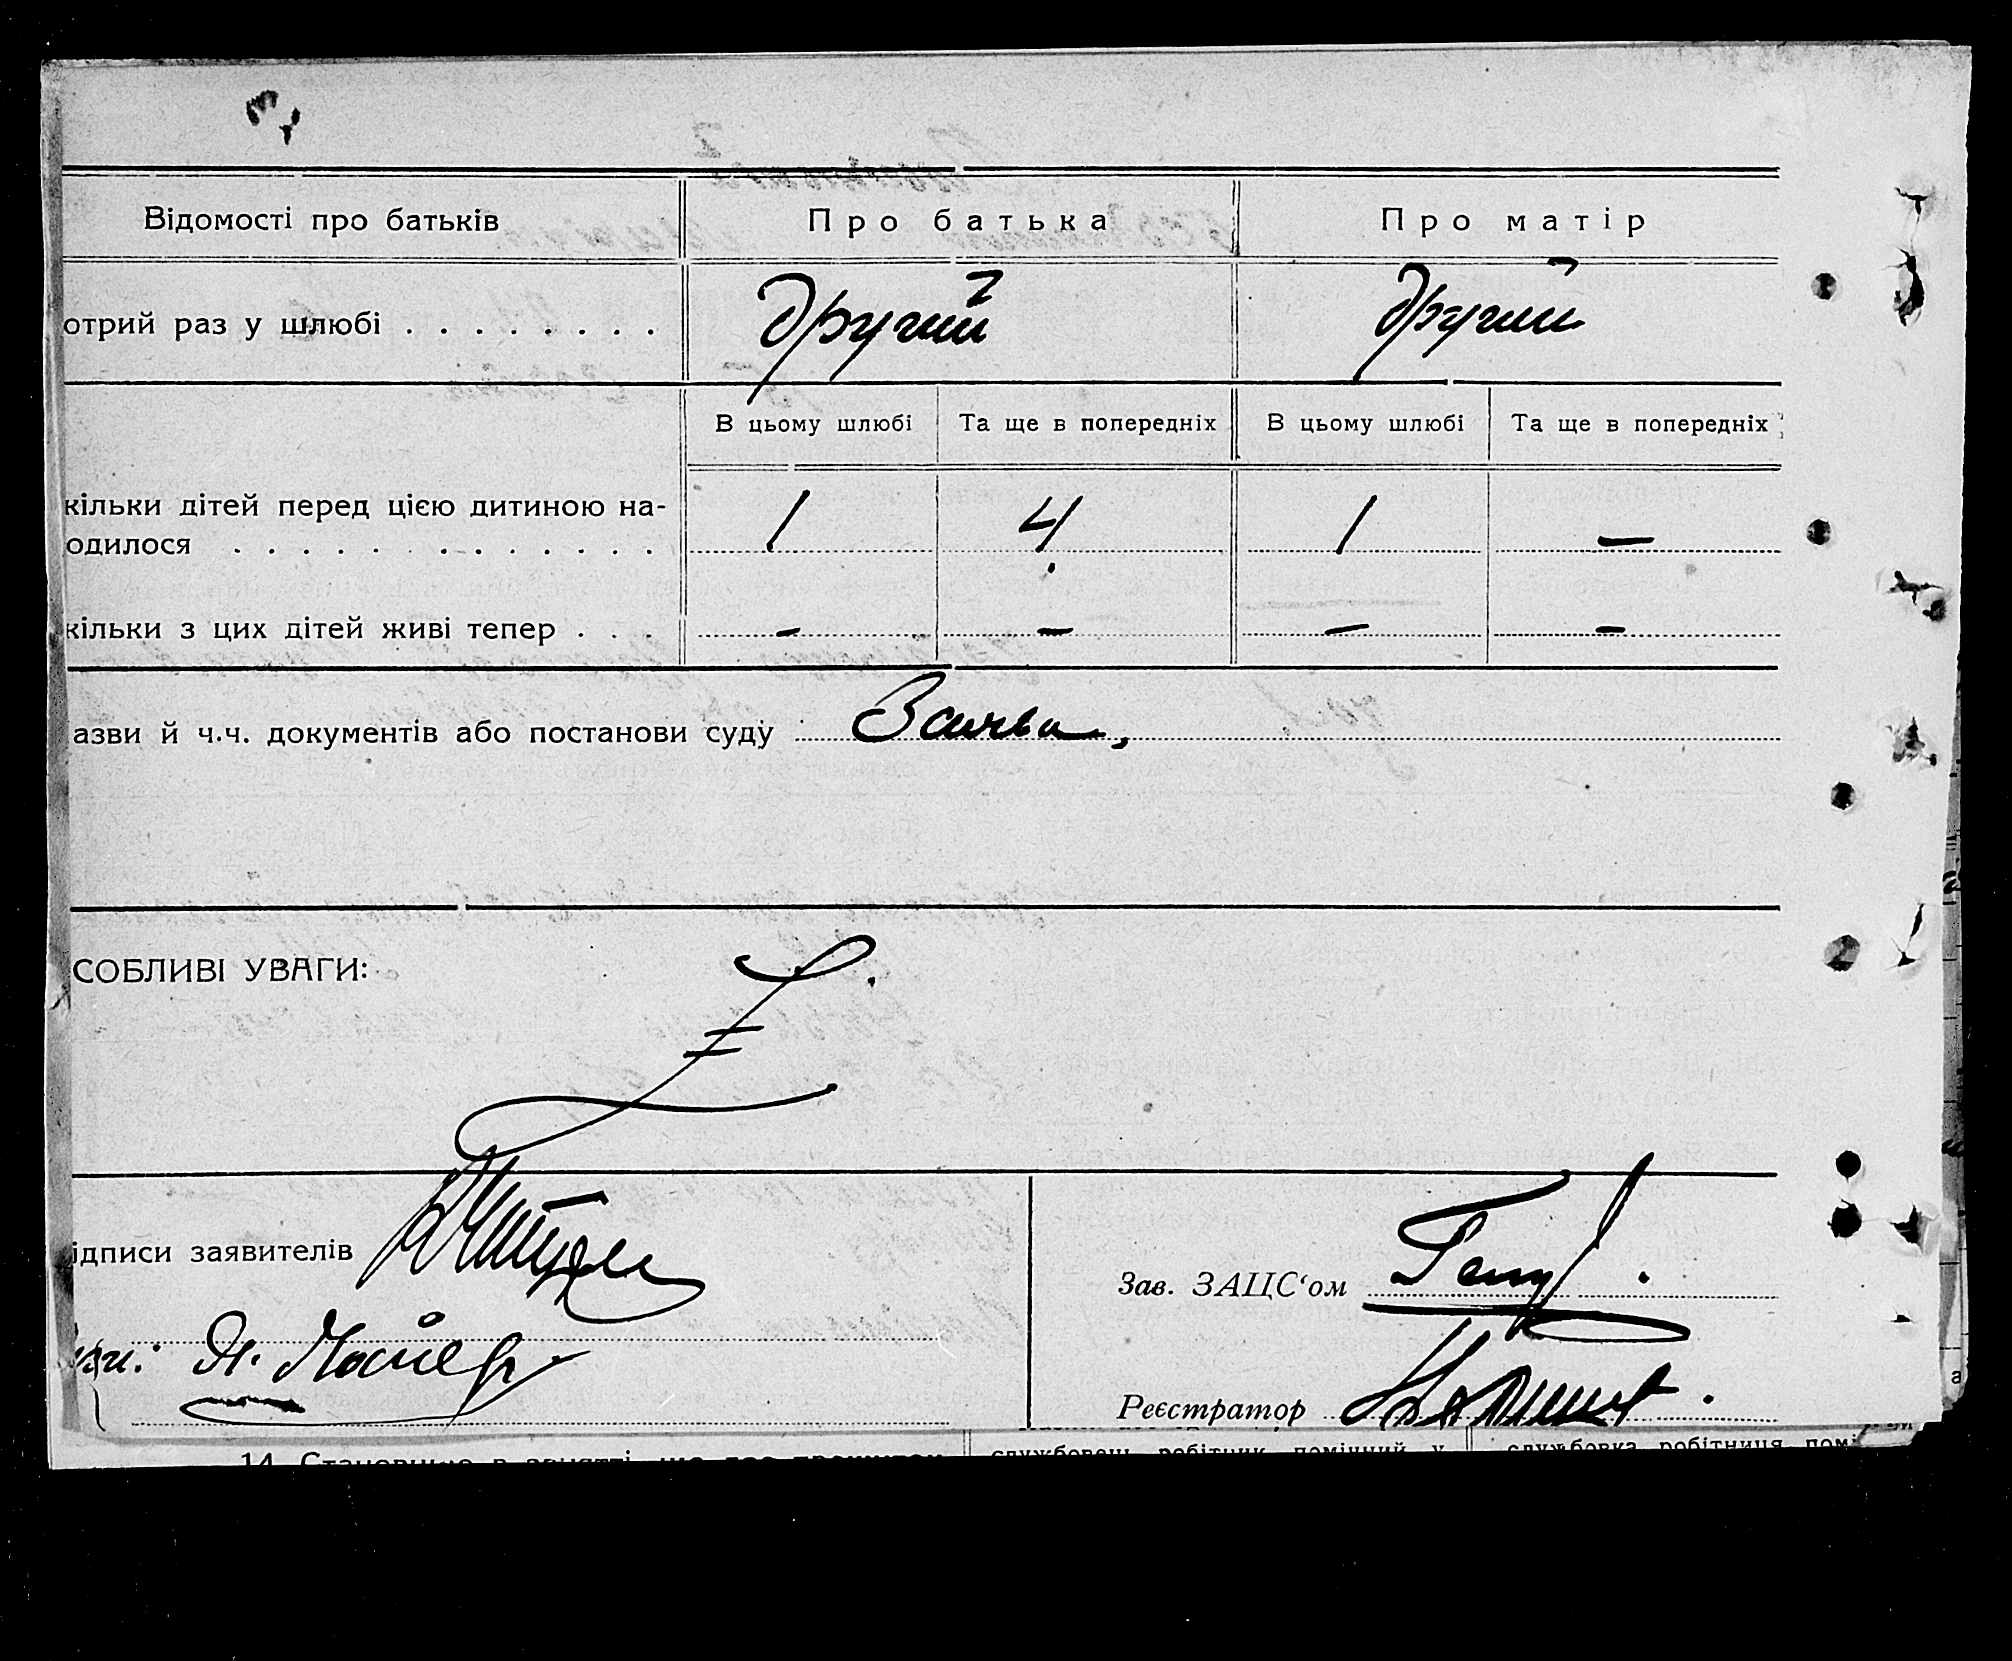 Відомості про батьків Про батька Про матір
отрий раз у шлюбі . . . . . . . . другий другий
В цьому шлюбі Та ще в попередніх В цьому шлюбі Та ще в попередніх
кільки дітей перед цією дитиною на-
одилося . . . . . . . . . . . . . 1 4 1 —
кільки з цих дітей живі тепер . . . — — — —
азви й ч.ч. документів або постанови суду Заява,
СОБЛИВІ УВАГИ:
ідписи заявителів
Зав. ЗАЦС‘ом
Реєстратор
14. Становище в занятті, що дає прожиток службовець, робітник, помічний у службовка, робітниця, помі